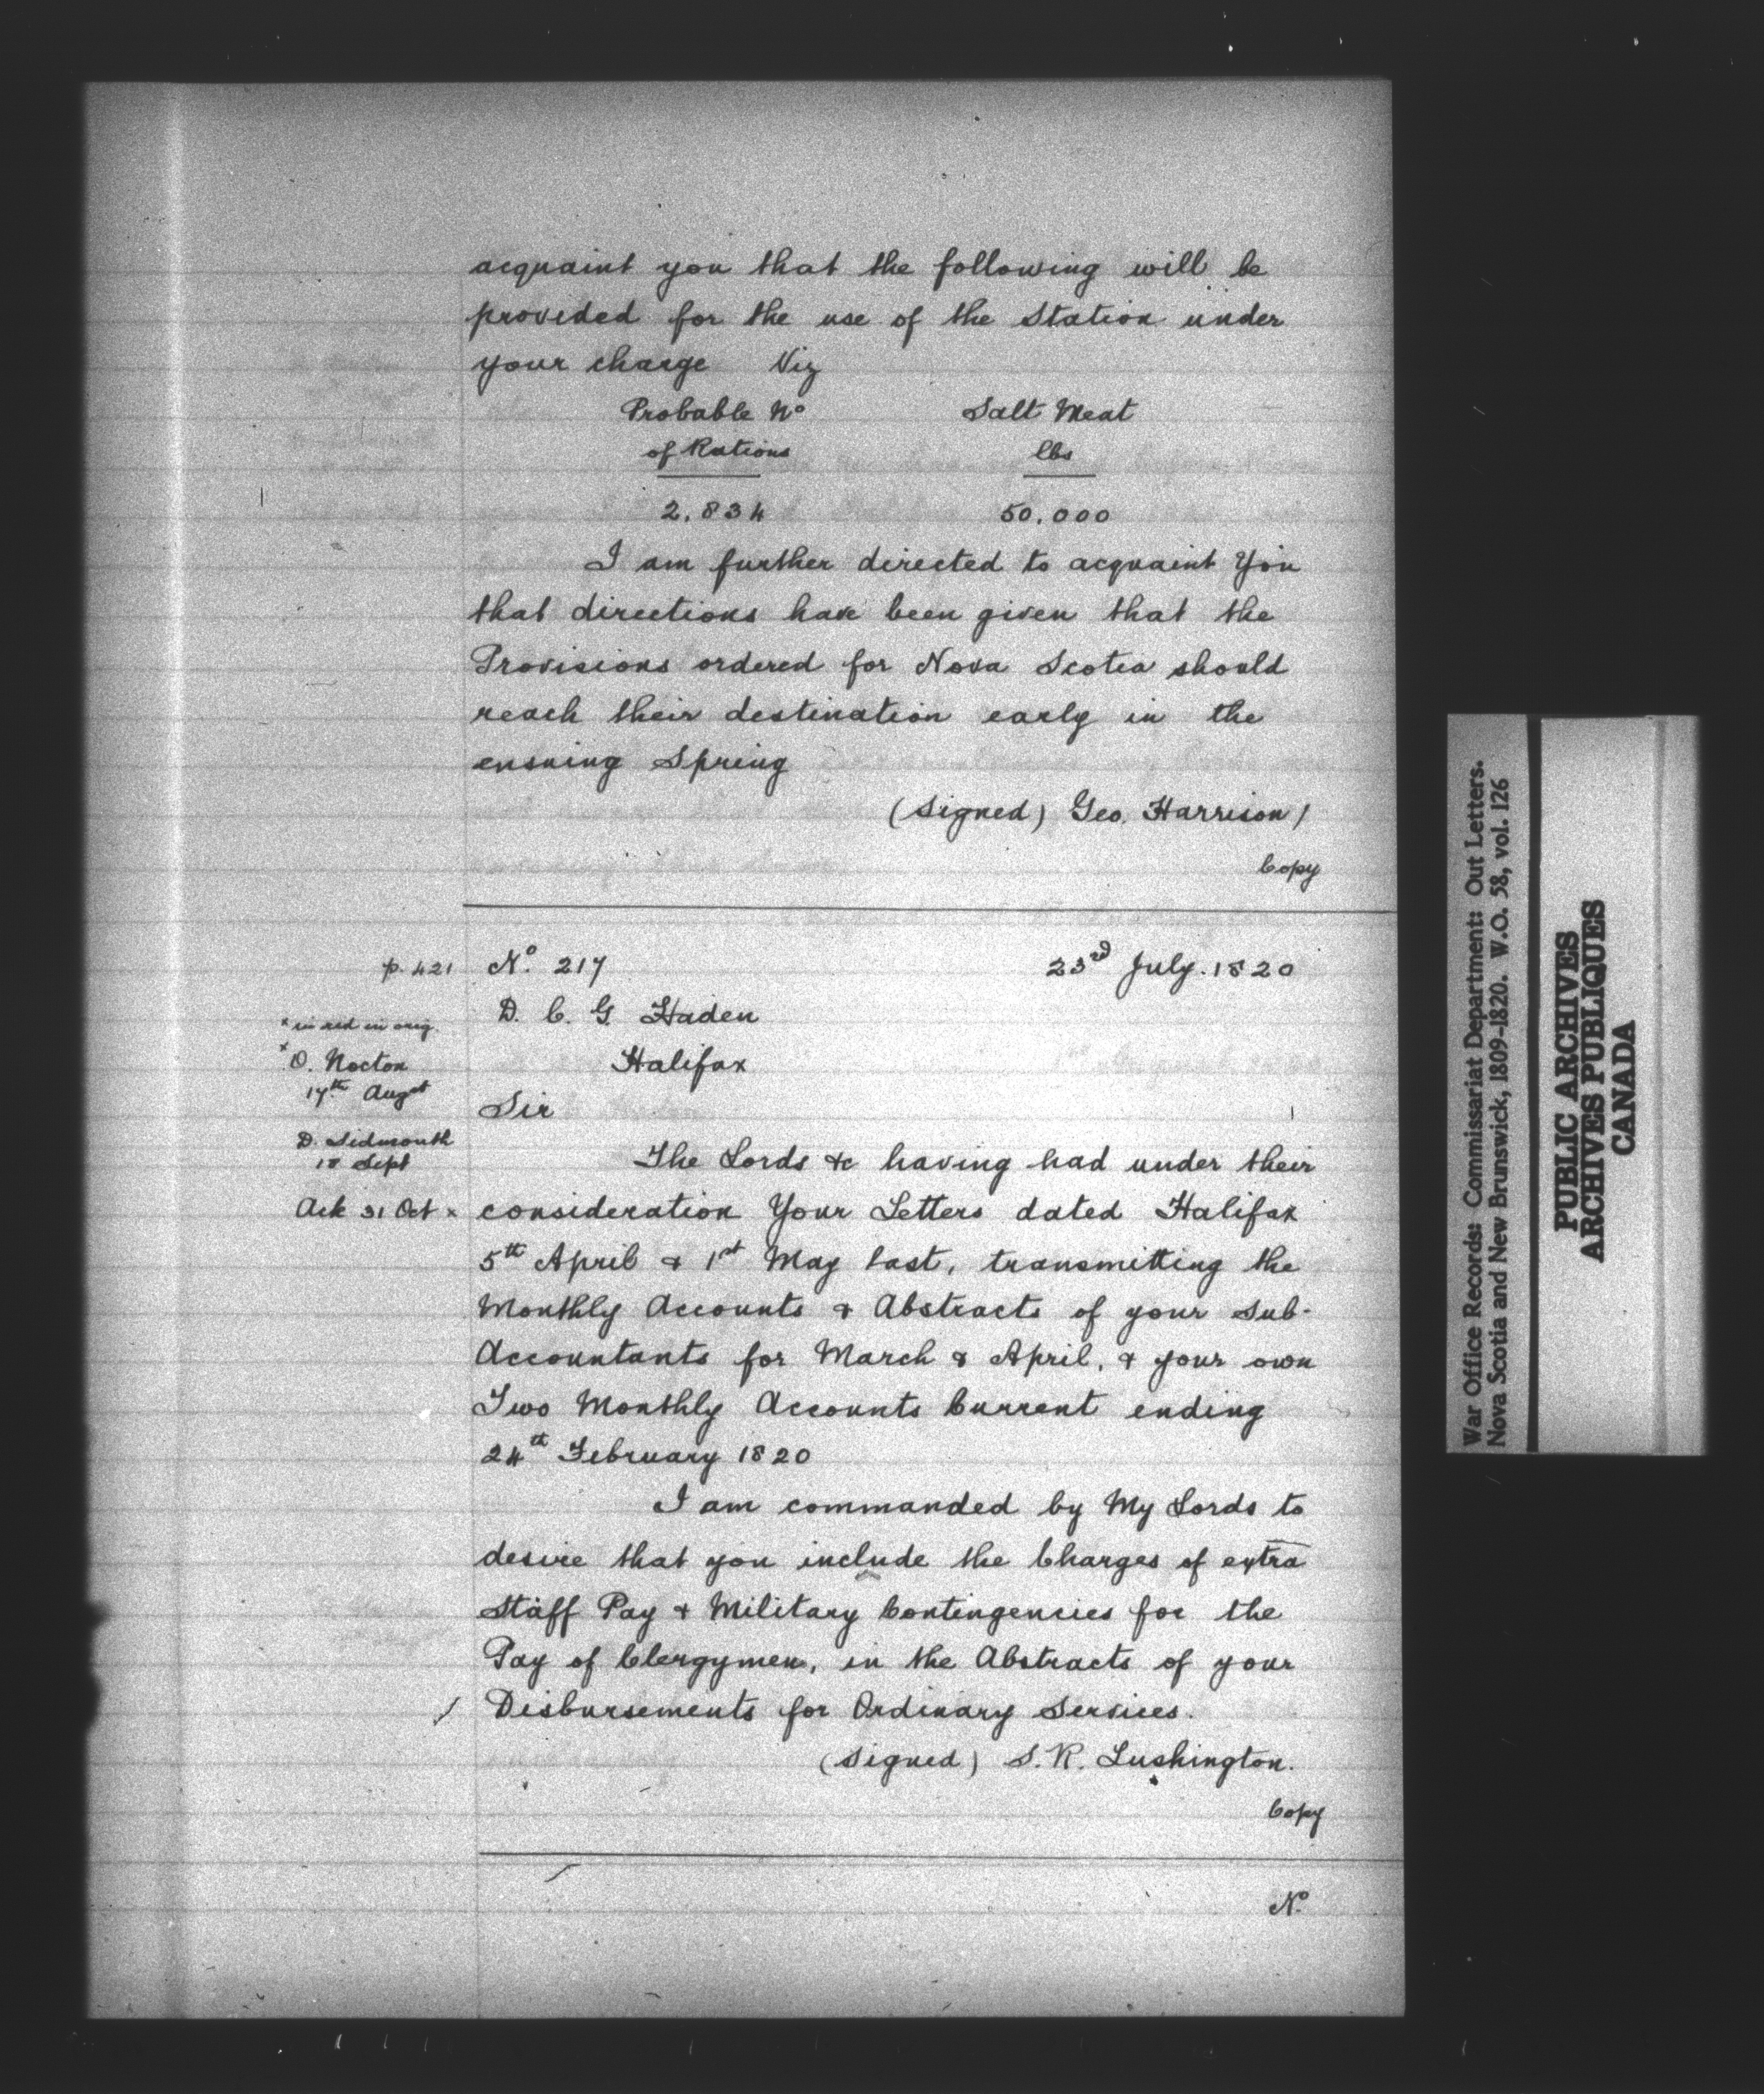 acquaint you that the following will be
provided for the use of the Station under
your charge Viz
Probable No Salt Meat
of Rations lbs
2,834 50,000
I am further directed to acquaint You
that directions have been given that the
Provisions ordered for Nova Scotia should
reach their destination early in the
ensuing Spring
(signed) Geo. Harrison /
Copy
p. 421 No. 217 23rd July. 1820
D. C. G. Haden
Halifax
x in red in orig.
x O. Nocton
17th Augst
D. Sidmouth
18 Sept
Ack 31 Oct x
Sir
The Lords &c having had under their
consideration Your Letters dated Halifax
5th April & 1st May last, transmitting the
Monthly Accounts & Abstracts of your Sub-
Accountants for March & April, & your own
Two Monthly Accounts Current ending
24th February 1820
I am commanded by My Lords to
desire that you include the Charges of extra
Staff Pay & Military Contingencies for the
Pay of Clergymen, in the Abstracts of your
/ Disbursements for Ordinary Services.
(signed) S. R. Lushington.
Copy
No.
War Office Records: Commissariat Department: Out Letters.
Nova Scotia and New Brunswick, 1809-1820. W.O. 58, vol. 126
PUBLIC ARCHIVES
ARCHIVES PUBLIQUES
CANADA